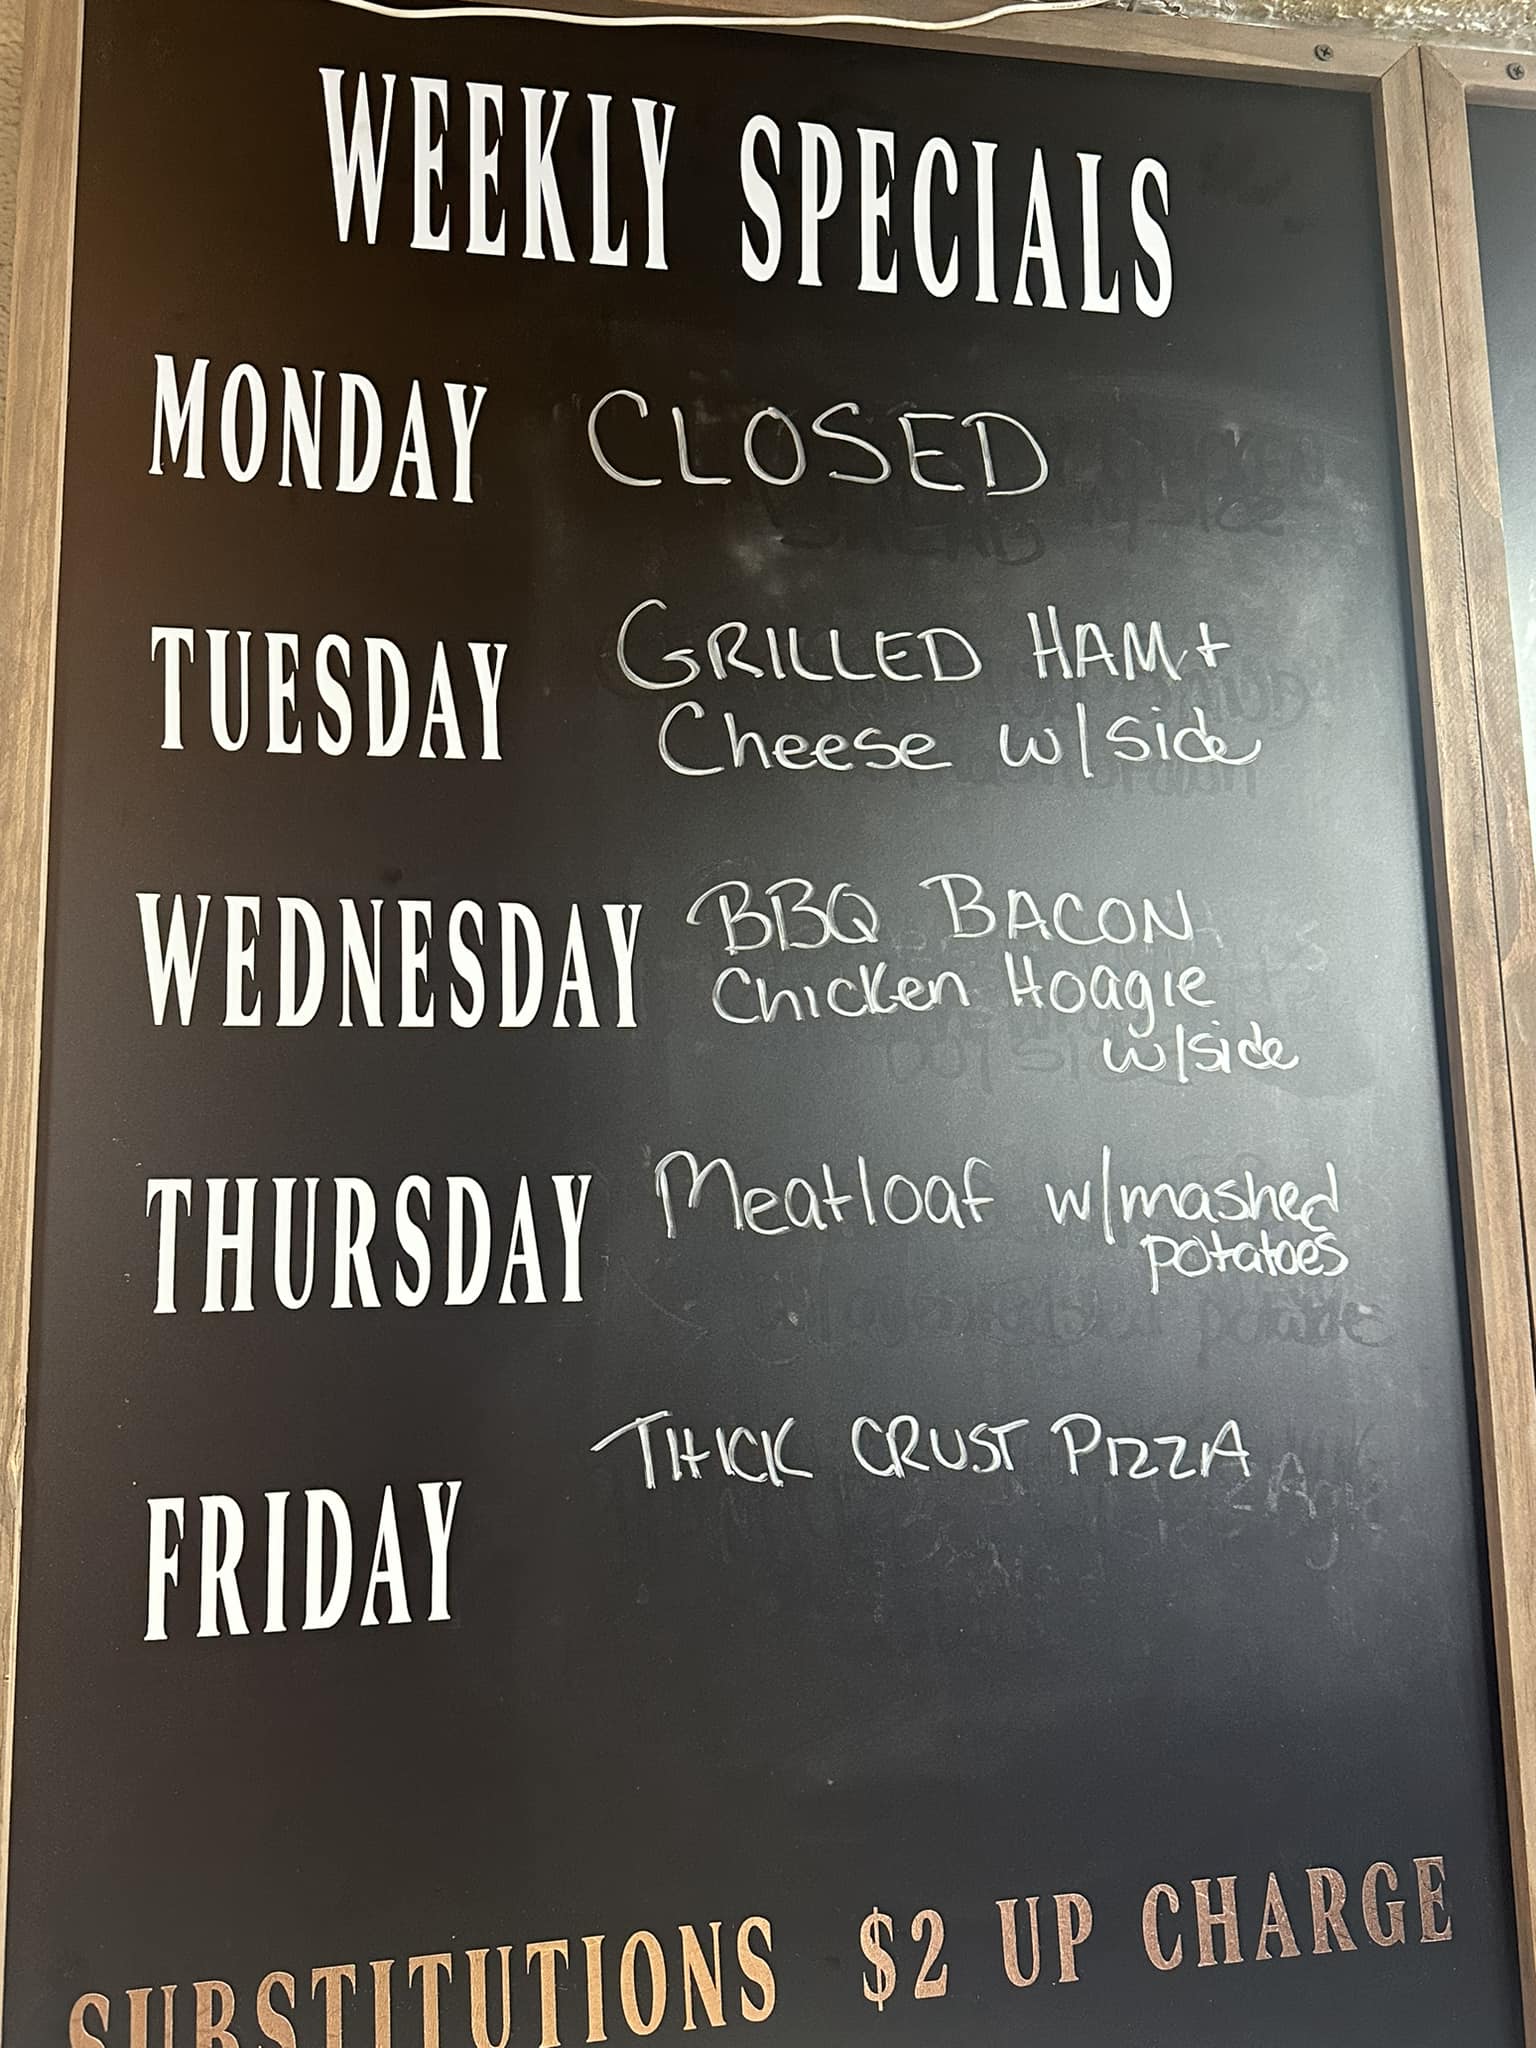 WEEKLY SPECIALS
MONDAY CLOSED
TUESDAY GRILLED HAM +
Cheese w/side
WEDNESDAY BBQ BACON
Chicken Hoagie
w/side
THURSDAY Meatloaf w/mashed
potatoes
FRIDAY THICK CRUST PIZZA
SUBSTITUTIONS $2 UP CHARGE